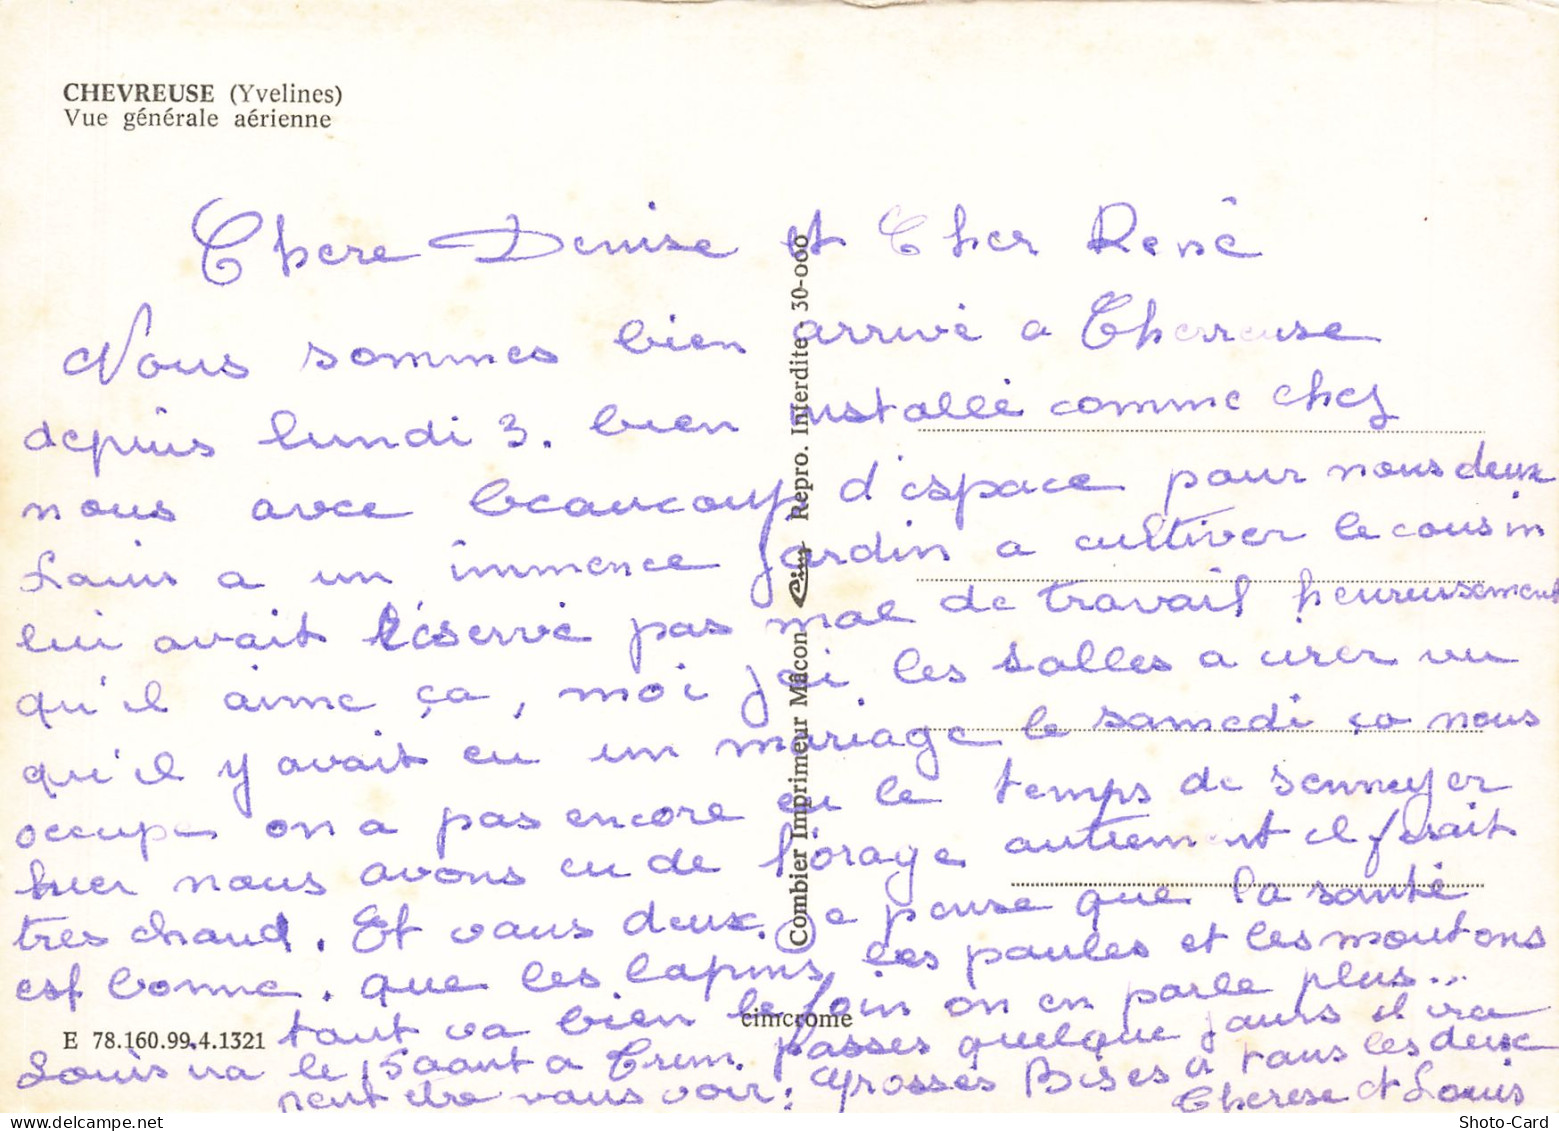 CHEVREUSE (Yvelines)
Vue générale aérienne
Chere Denise et Cher René
Nous sommes bien arrivé a Chevreuse
depuis lundi 3. bien installé comme chez
nous avec beaucoup d'espace pour nous deux
Louis a un immence jardin a cultiver le cousin
lui avait réservé pas mal de travail heureusement
qu'il aime ça, moi j'ai les salles a cirer vu
qu'il y avait eu un mariage le samedi ça nous
occupe on a pas encore eu le temps de sennuyer
hier nous avons eu de l'orage autrement il fesait
tres chaud. Et vous deux. je pense que la santé
est bonne. que les lapins, les poules et les moutons
tout va bien le foin on en parle plus...
Louis ira le 15 aout a passes quelque jours il ira
peut etre vous voir. Grosses Bises a tous les deux
Therese et Louis
Combier Imprimeur Mâcon Cim Repro. Interdite - 30-000
cimcrome
E 78.160.99.4.1321
Shoto-Card